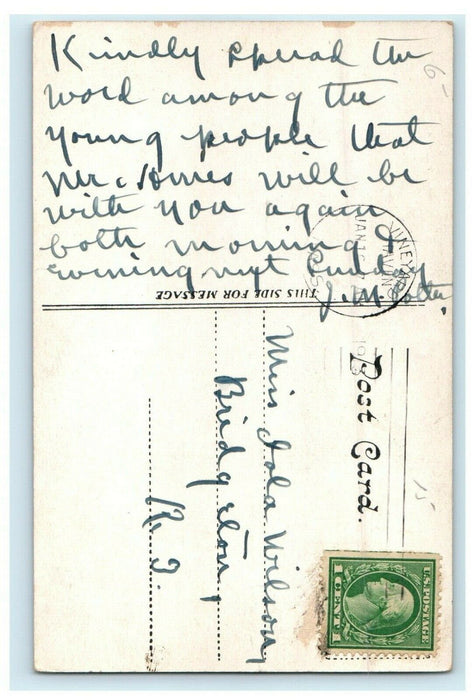 Kindly spread the
word among the
young people that
Mr. Homes will be
with you again
both morning &
evening next Sunday
J. M. Cotter
THIS SIDE FOR MESSAGE
VINEYARD
JAN
Post Card.
Miss Iola Wilson,
Bridgeton,
R. I.
U.S. POSTAGE
1 CENT 1
6-
15